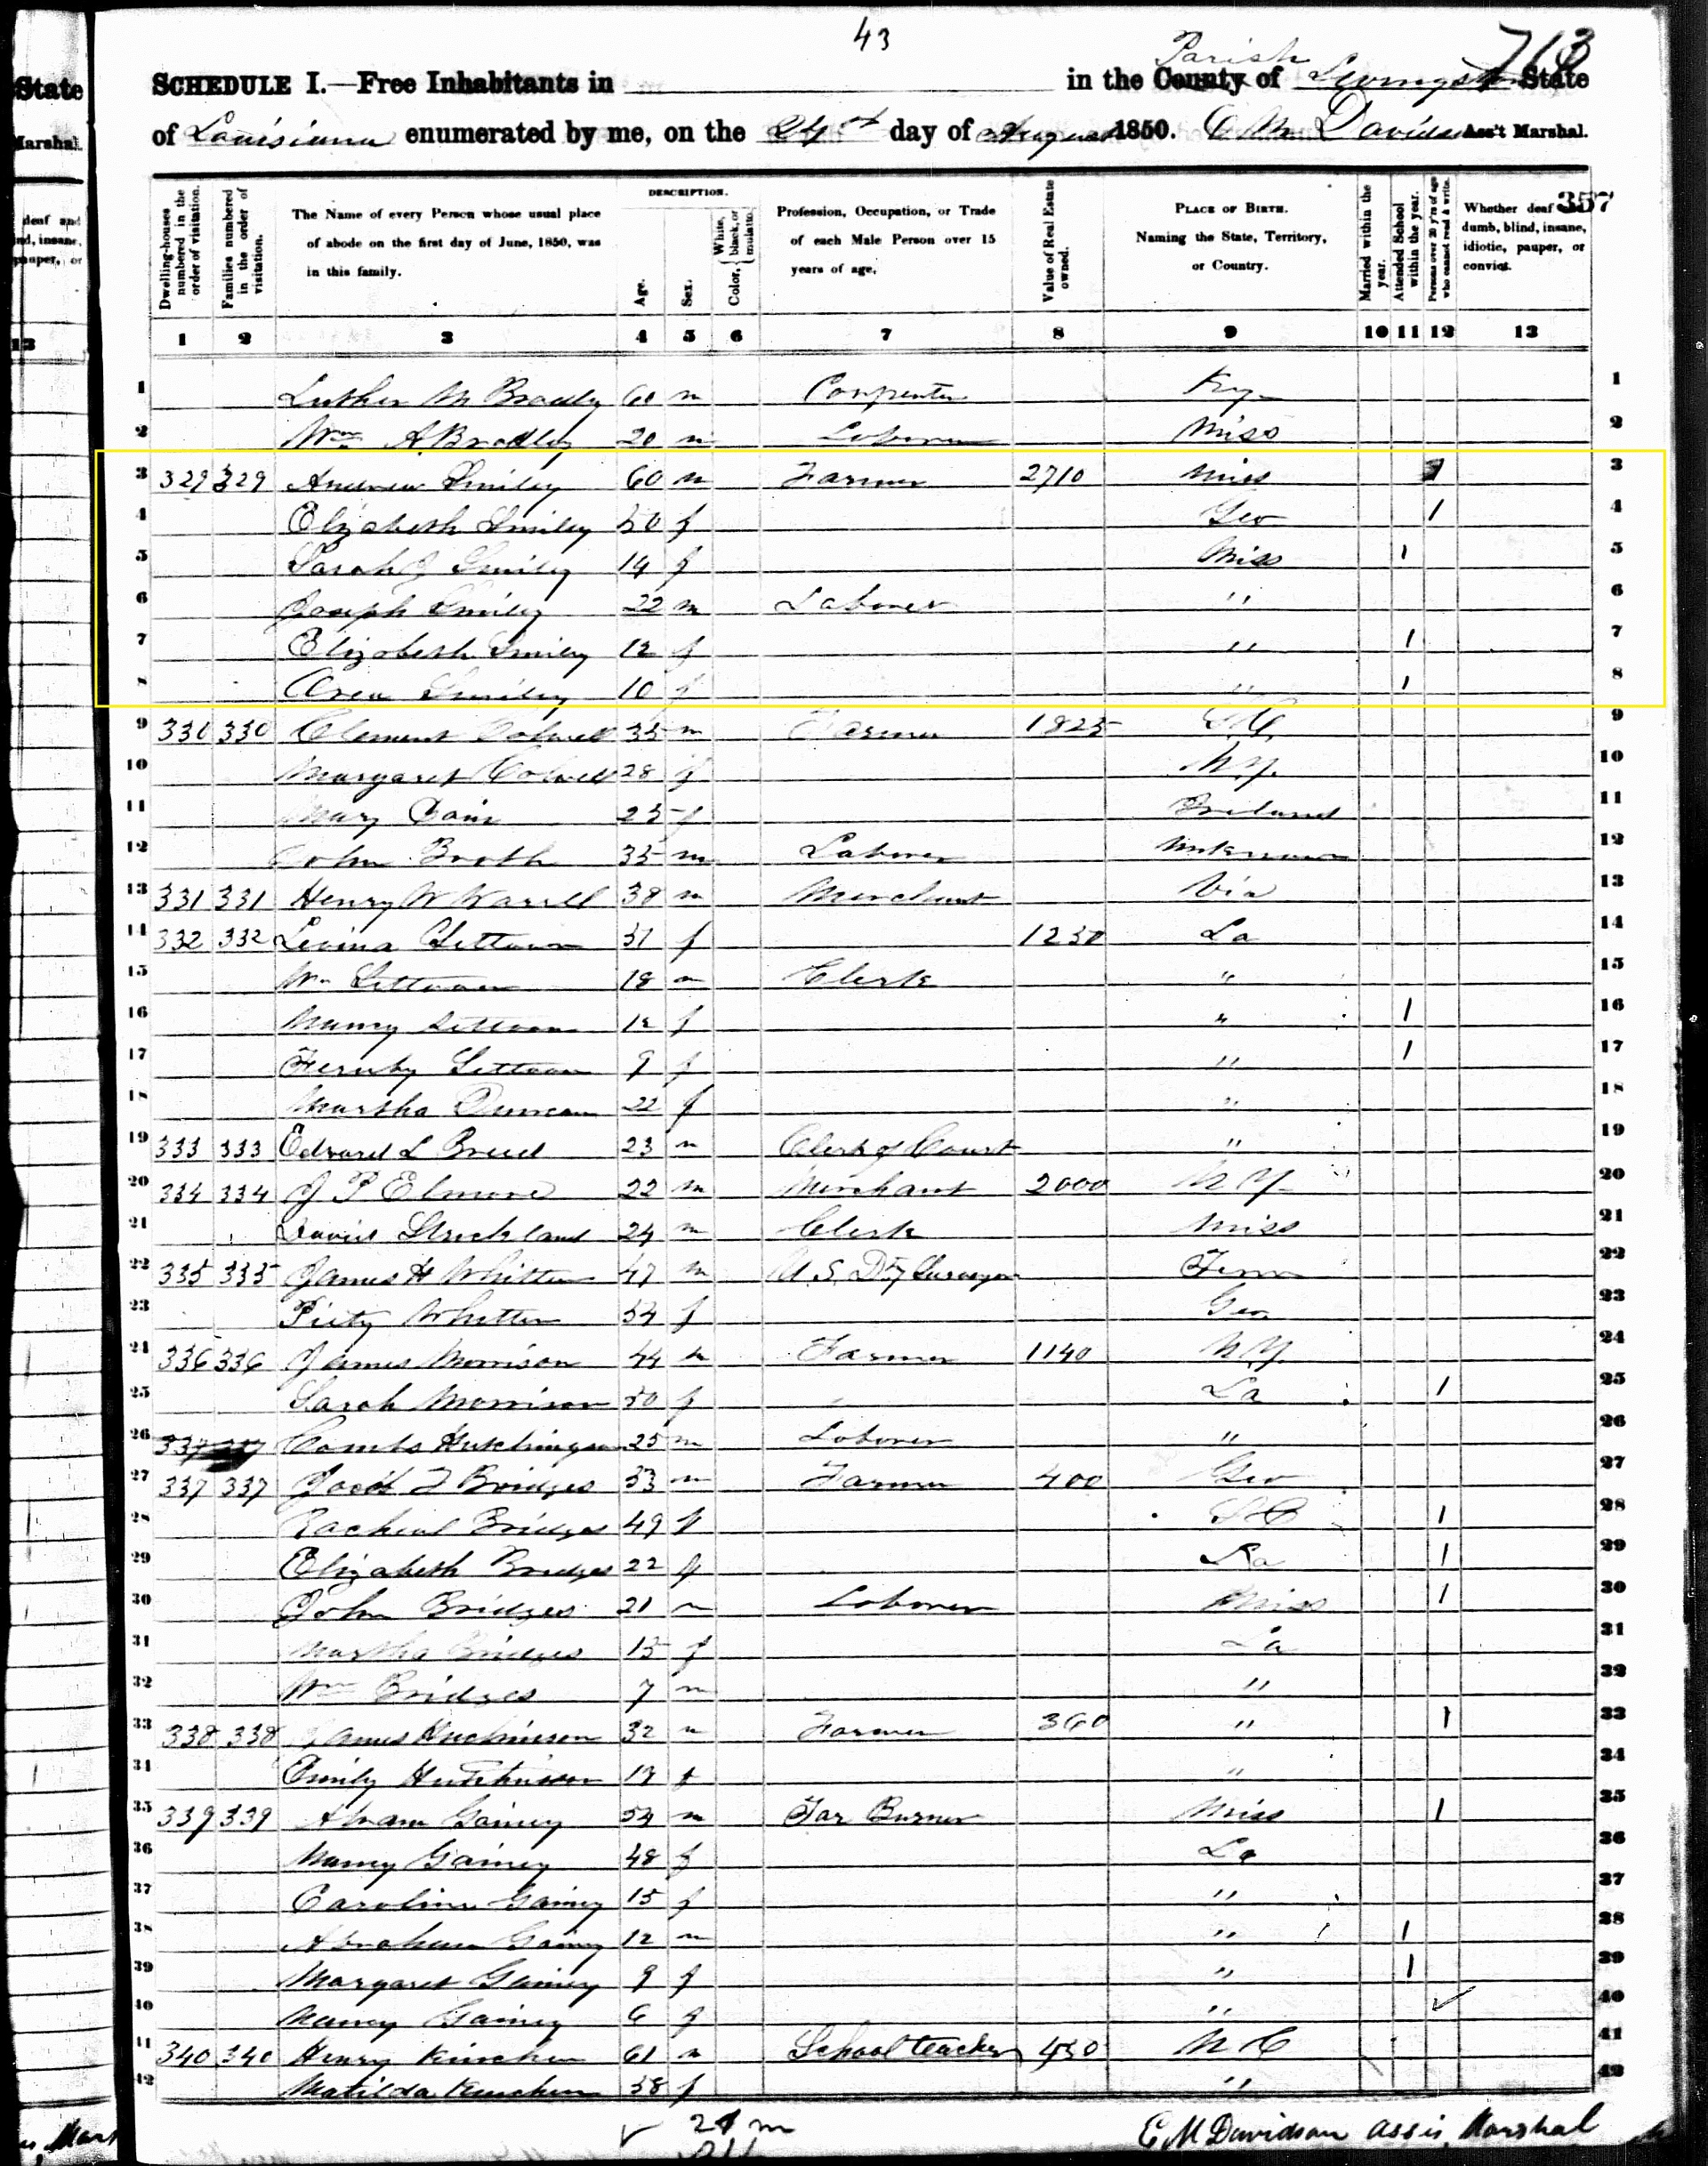 43
713
State
Parish
SCHEDULE I.—Free Inhabitants in in the County of Livingston State
Marshal.
of Louisiana enumerated by me, on the 24st day of August 1850. E M Davidson Ass't Marshal.
357
DESCRIPTION.
Dwelling-houses numbered in the order of visitation.
Families numbered in the order of visitation.
The Name of every Person whose usual place of abode on the first day of June, 1850, was in this family.
Age.
Sex.
Color, White, black, or mulatto.
Profession, Occupation, or Trade of each Male Person over 15 years of age.
Value of Real Estate owned.
PLACE OF BIRTH. Naming the State, Territory, or Country.
Married within the year.
Attended School within the year.
Persons over 20 y'rs of age who cannot read & write.
Whether deaf and dumb, blind, insane, idiotic, pauper, or convict.
1 2 3 4 5 6 7 8 9 10 11 12 13
1 Luther M Bradley 60 m Carpenter Ky 1
2 Wm A Bradley 20 m Laborer Miss 2
3 329 329 Andrew Smiley 60 m Farmer 2710 Miss 1 3
4 Elizabeth Smiley 50 f Geo 1 4
5 Sarah J Smiley 14 f Miss 1 5
6 Joseph Smiley 22 m Laborer " 6
7 Elizabeth Smiley 12 f " 1 7
8 Smiley 10 f " 1 8
9 330 330 Clement 35 m Farmer 1825 S.C. 9
10 Margaret 28 f N.Y. 10
11 Mary 25 f Ireland 11
12 John Booth 35 m Laborer Unknown 12
13 331 331 Henry W 38 m Merchant Via 13
14 332 332 Levina 51 f 1250 La 14
15 Wm 18 m Clerk " 15
16 Nancy 12 f " 1 16
17 9 f " 1 17
18 Martha Duncan 22 f " 18
19 333 333 Edward L Breed 23 m Clerk of Court " 19
20 334 334 J P Elmore 22 m Merchant 2000 N Y 20
21 Strickland 24 m Clerk Miss 21
22 335 335 James H Whitten 47 m U. S. Dty Surveyor Tenn 22
23 Piety Whitten 54 f Geo 23
24 336 336 James Morrison 44 m Farmer 1140 N Y. 24
25 Sarah Morrison 50 f La 1 25
26 337 Hutchinson 25 m Laborer " 26
27 337 337 Bridges 53 m Farmer 400 Geo 27
28 Racheal Bridges 49 f S C 1 28
29 Elizabeth Bridges 22 f La 1 29
30 John Bridges 21 m Laborer Miss 1 30
31 Martha Bridges 15 f La 31
32 Wm Bridges 7 m " 32
33 338 338 James Hutchinson 32 m Farmer 360 " 1 33
34 Emily Hutchinson f " 34
35 339 339 Abram Gainey 54 m Tar Burner Miss 1 35
36 Nancy Gainey 48 f La 36
37 Caroline Gainey 15 f " 37
38 Abraham Gainey 12 m " 1 38
39 Margaret Gainey 9 f " 1 39
40 Nancy Gainey 6 f " 40
41 340 340 Henry Kinchen 61 m School teacher 450 N C 41
42 Matilda Kinchen 58 f " 42
21 m
E M Davidson Assis Marshal